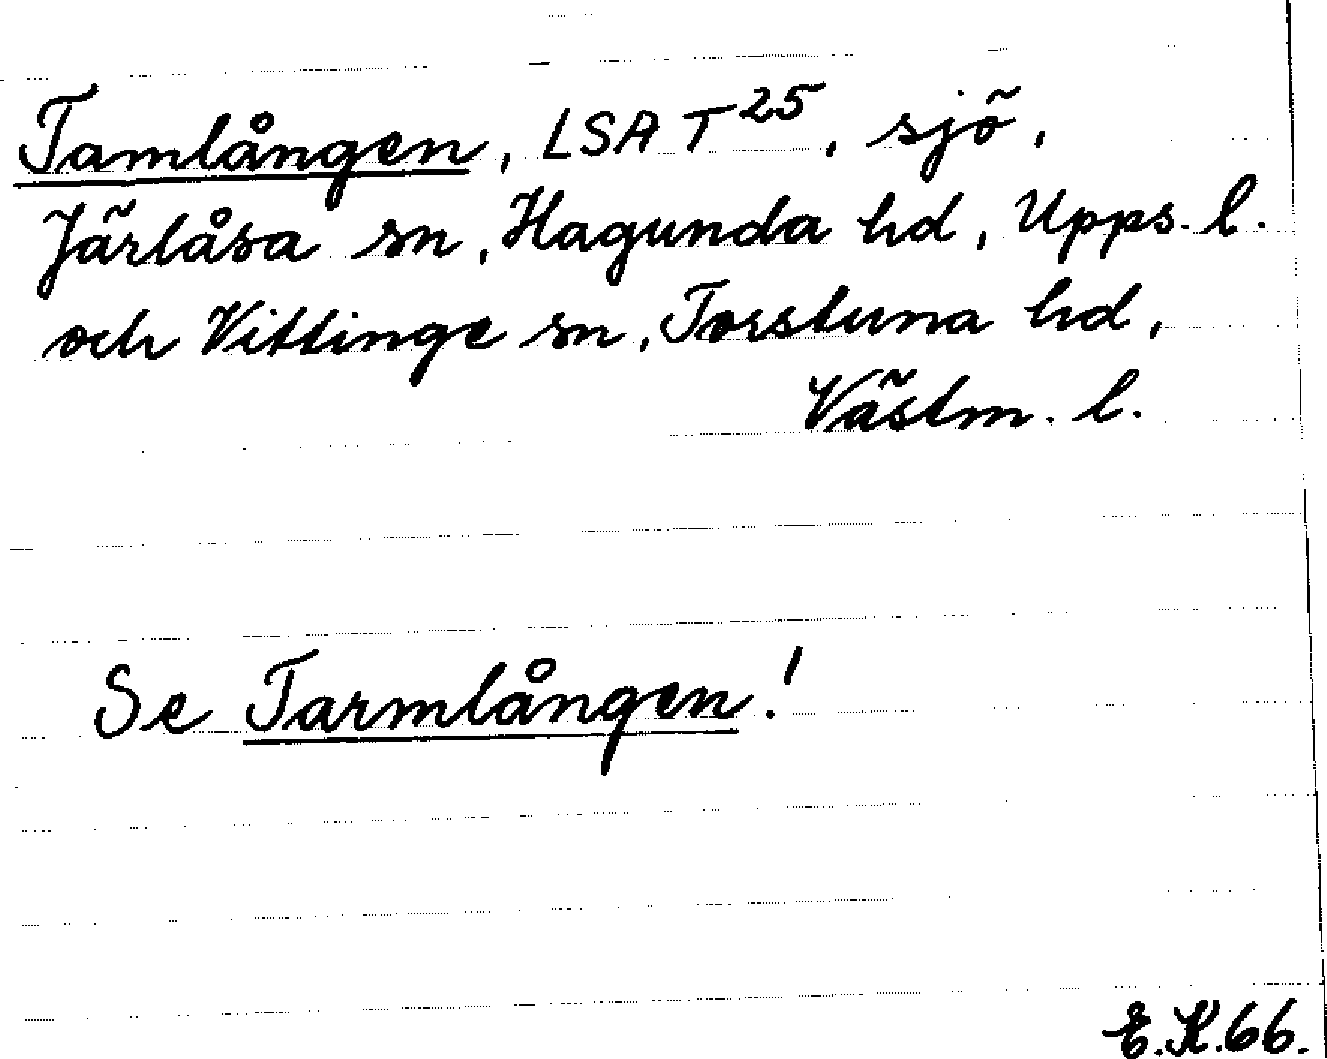 Tamlången, LSA T²⁵, sjö,
Järlåsa sn, Hagunda hd, Upps. l.
och Vittinge sn, Torstuna hd,
Västm. l.
Se Tarmlången!
E.K.66.